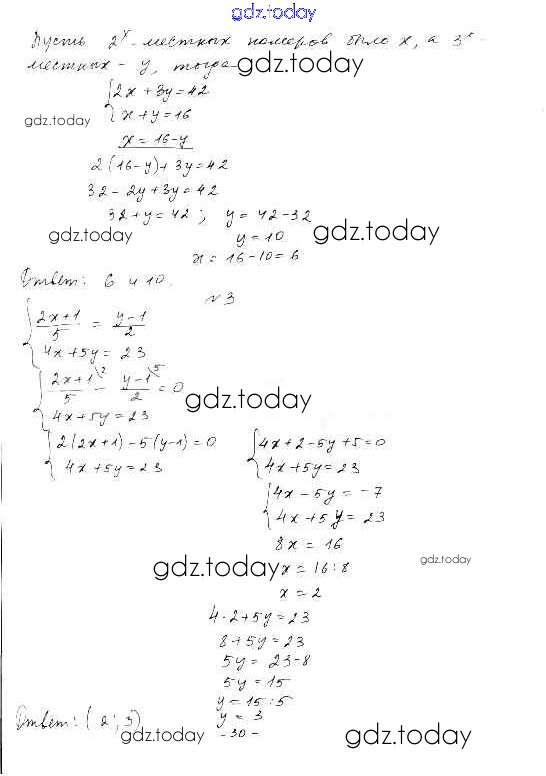 gdz.today
Пусть 2ˣ-местных номеров было x, а 3ˣ-
местных - y, тогда gdz.today
{2x + 3y = 42
gdz.today {x + y = 16
x = 16-y
2(16-y)+3y=42
32-2y+3y=42
32+y=42; y = 42-32
gdz.today y = 10 gdz.today
x = 16-10=6
Ответ: 6 и 10.
№3
{(2x+1)/5 = (y-1)/2
{4x+5y = 23
{(2x+1\2)/5 - (y-1\5)/2 = 0 gdz.today
{4x+5y=23
{2(2x+1)-5(y-1)=0 {4x+2-5y+5=0
{4x+5y=23 {4x+5y=23
{4x-5y=-7
{4x+5y=23
8x = 16
gdz.today x = 16:8 gdz.today
x = 2
4·2+5y=23
8+5y=23
5y = 23-8
5y = 15
y = 15:5
Ответ: (2; 3) y = 3
gdz.today -30- gdz.today